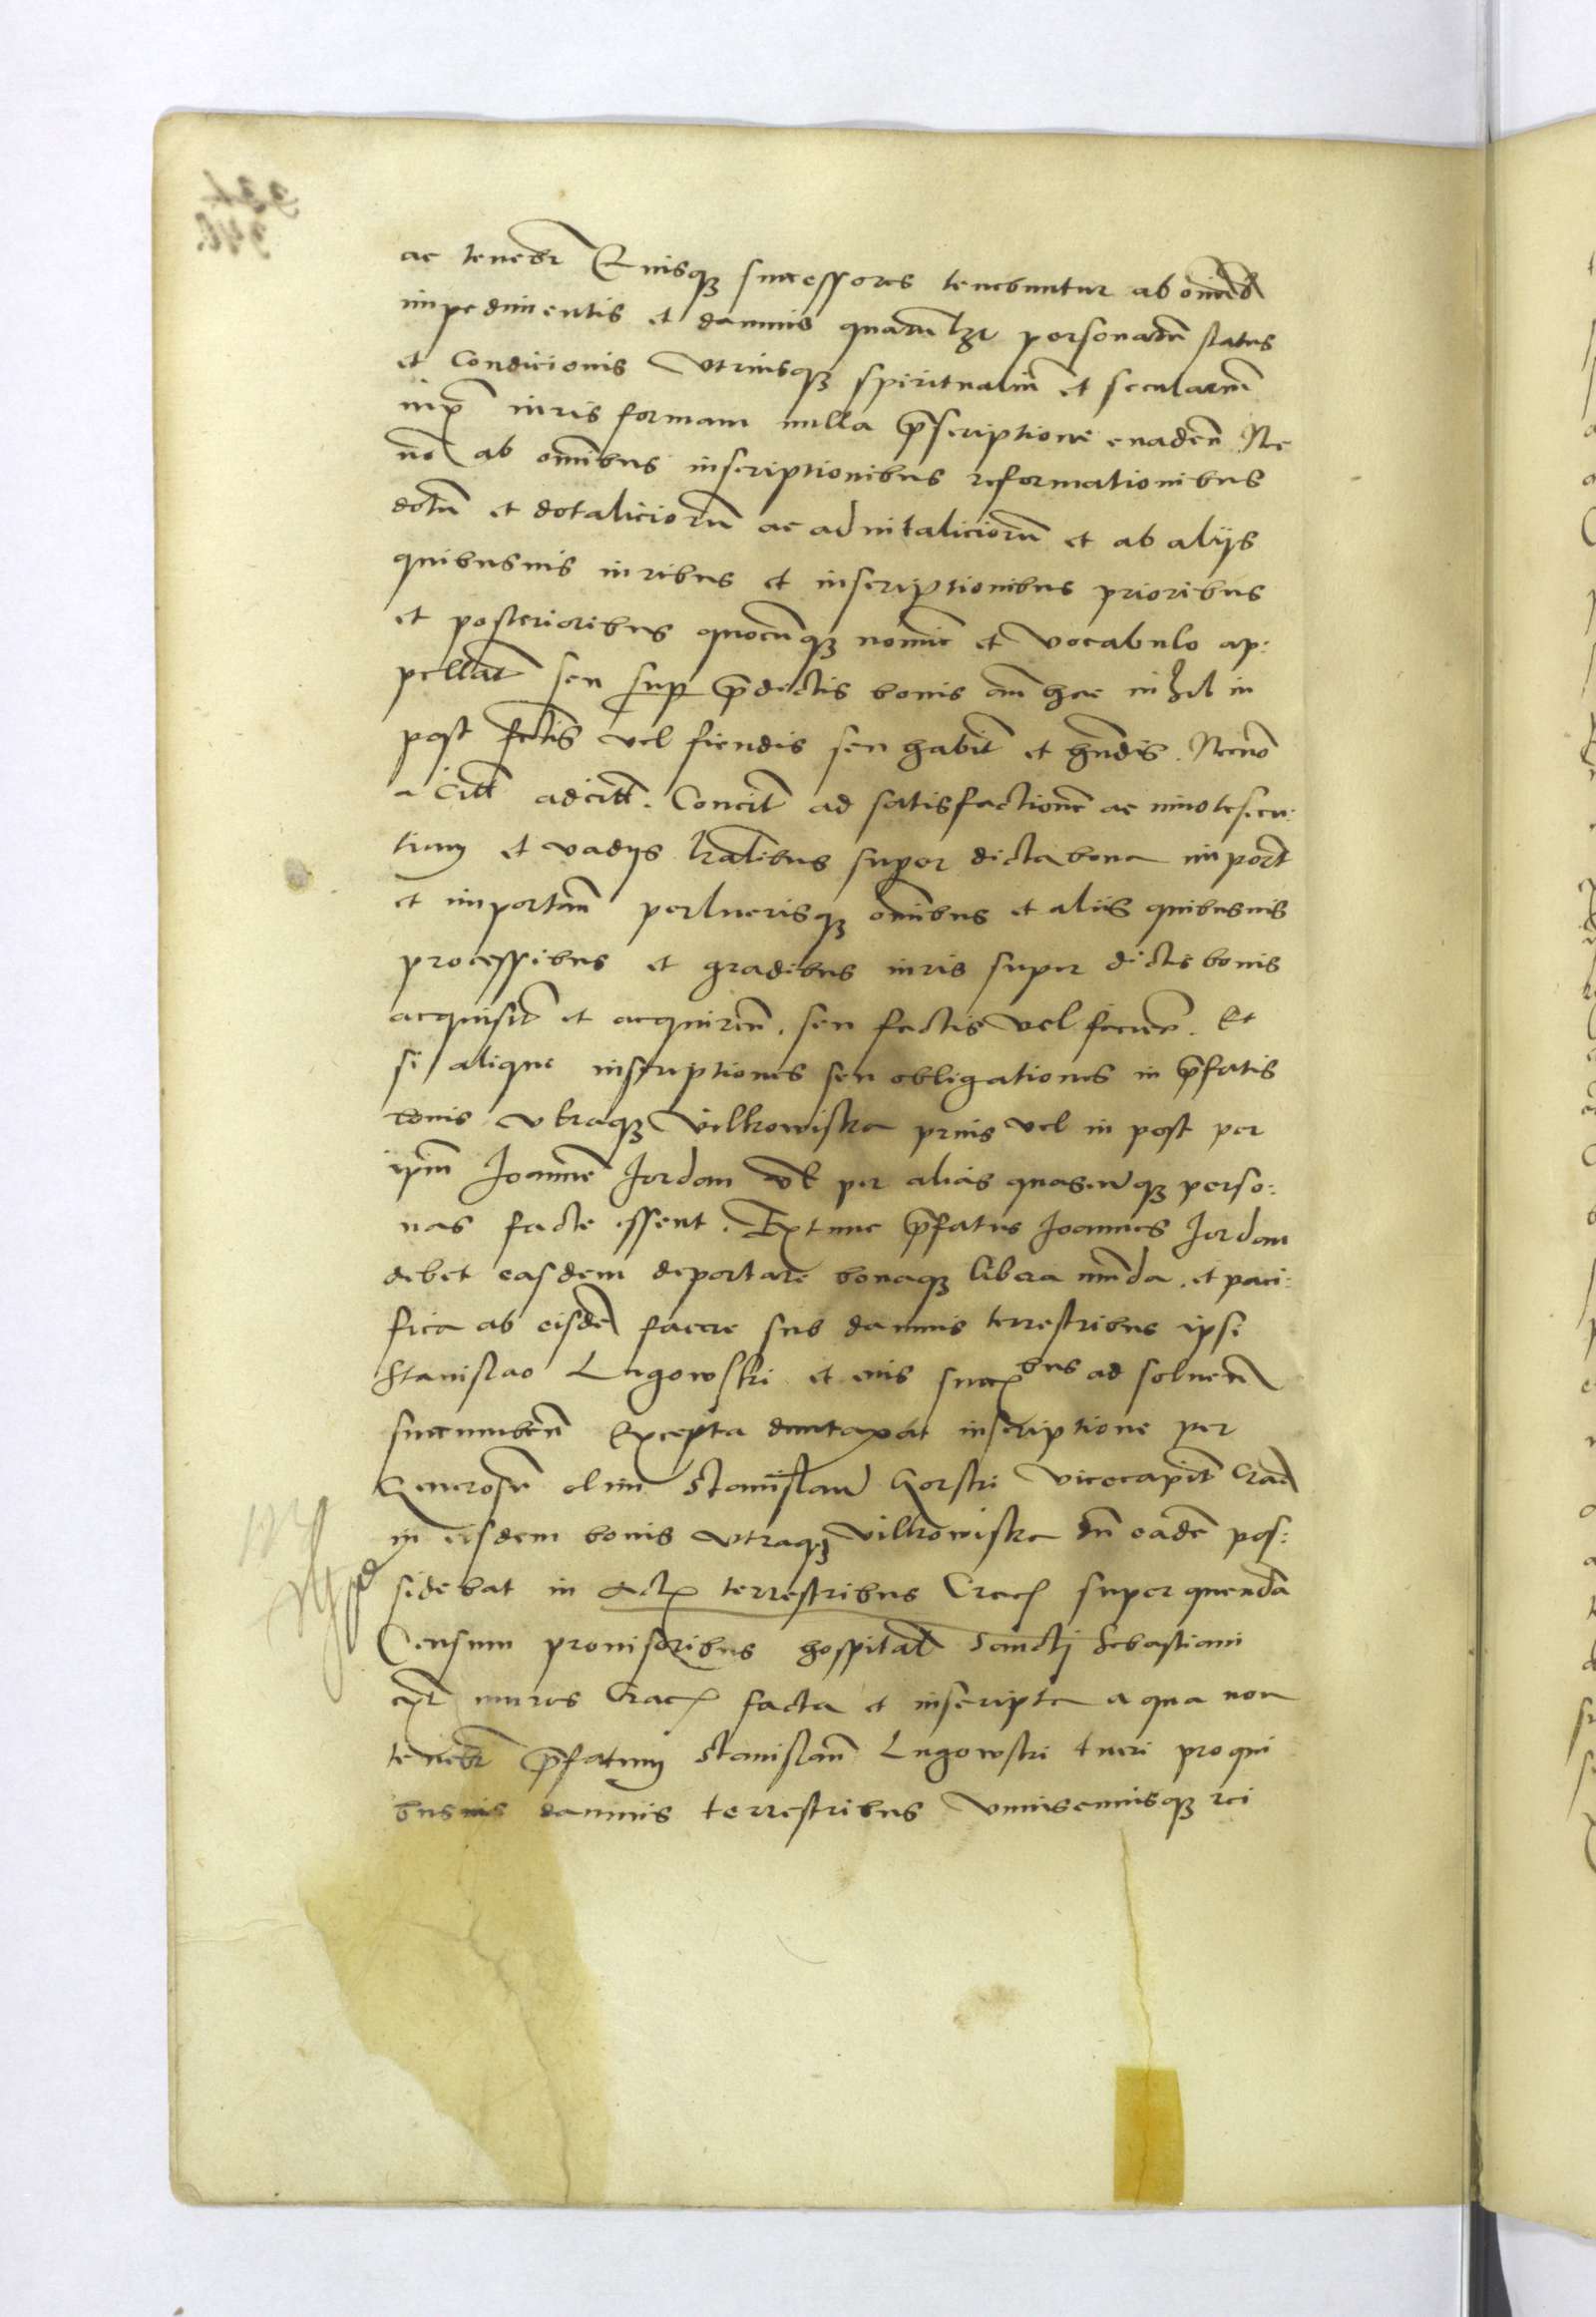 ac tenebr Eiusq successores tenebuntur ab omnib
impedimentis et damnis quarumlbt personarum status
et Condicionis Vtriusq spiritualium et secularium
iuxta iuris formam nulla prescriptione euaden Nec
no ab omnibus inscriptionibus reformationibus
dotum et dotaliciorum ac aduitaliciorum et ab alijs
quibusuis iuribus et inscriptionibus prioribus
et posterioribus quocunq nomine et vocabulo ap:
pellat seu sup predictis bonis antehac in
post fctis vel fiendis seu habit et hndis. Necno
a Citt adcitt. Concit ad satisfactionem ac innotescen:
tium et vadijs lralibus super dicta bona import
et importan perlucrisq omnibus et aliis quibusuis
processibus et gradibus iuris super dictis bonis
acquisit et acquiren. seu factis vel facien. Et
si alique inscriptiones seu obligationes in prefatis
bonis vtraq Vilkowiska prius vel in post per
ipsum Joannem Jordan vel per alias quascunq perso:
nas facte essent. Extunc prefatus Joannes Jordan
debet easdem deportare bonaq libera munda. et paci:
fica ab eisdem facere sub damnis terrestribus ipsi
Stanislao Lugowski et eius succbus ad soluen
succumben Excepta duntaxat inscriptione per
Generosum olim Stanislaum Gorski Vicecapit Crac
in eisdem bonis vtraq vilkowiska dum eadem pos:
sidebat in Actis terrestribus Crac super quendam
Censum prouisoribus hospitalis Sancti Sebastiani
extra muros Crac facta et inscripta a qua non
tenebr prefatum Stanislaum Lugowski tueri pro qui
busuis damnis terrestribus Vniuscuiusq rei